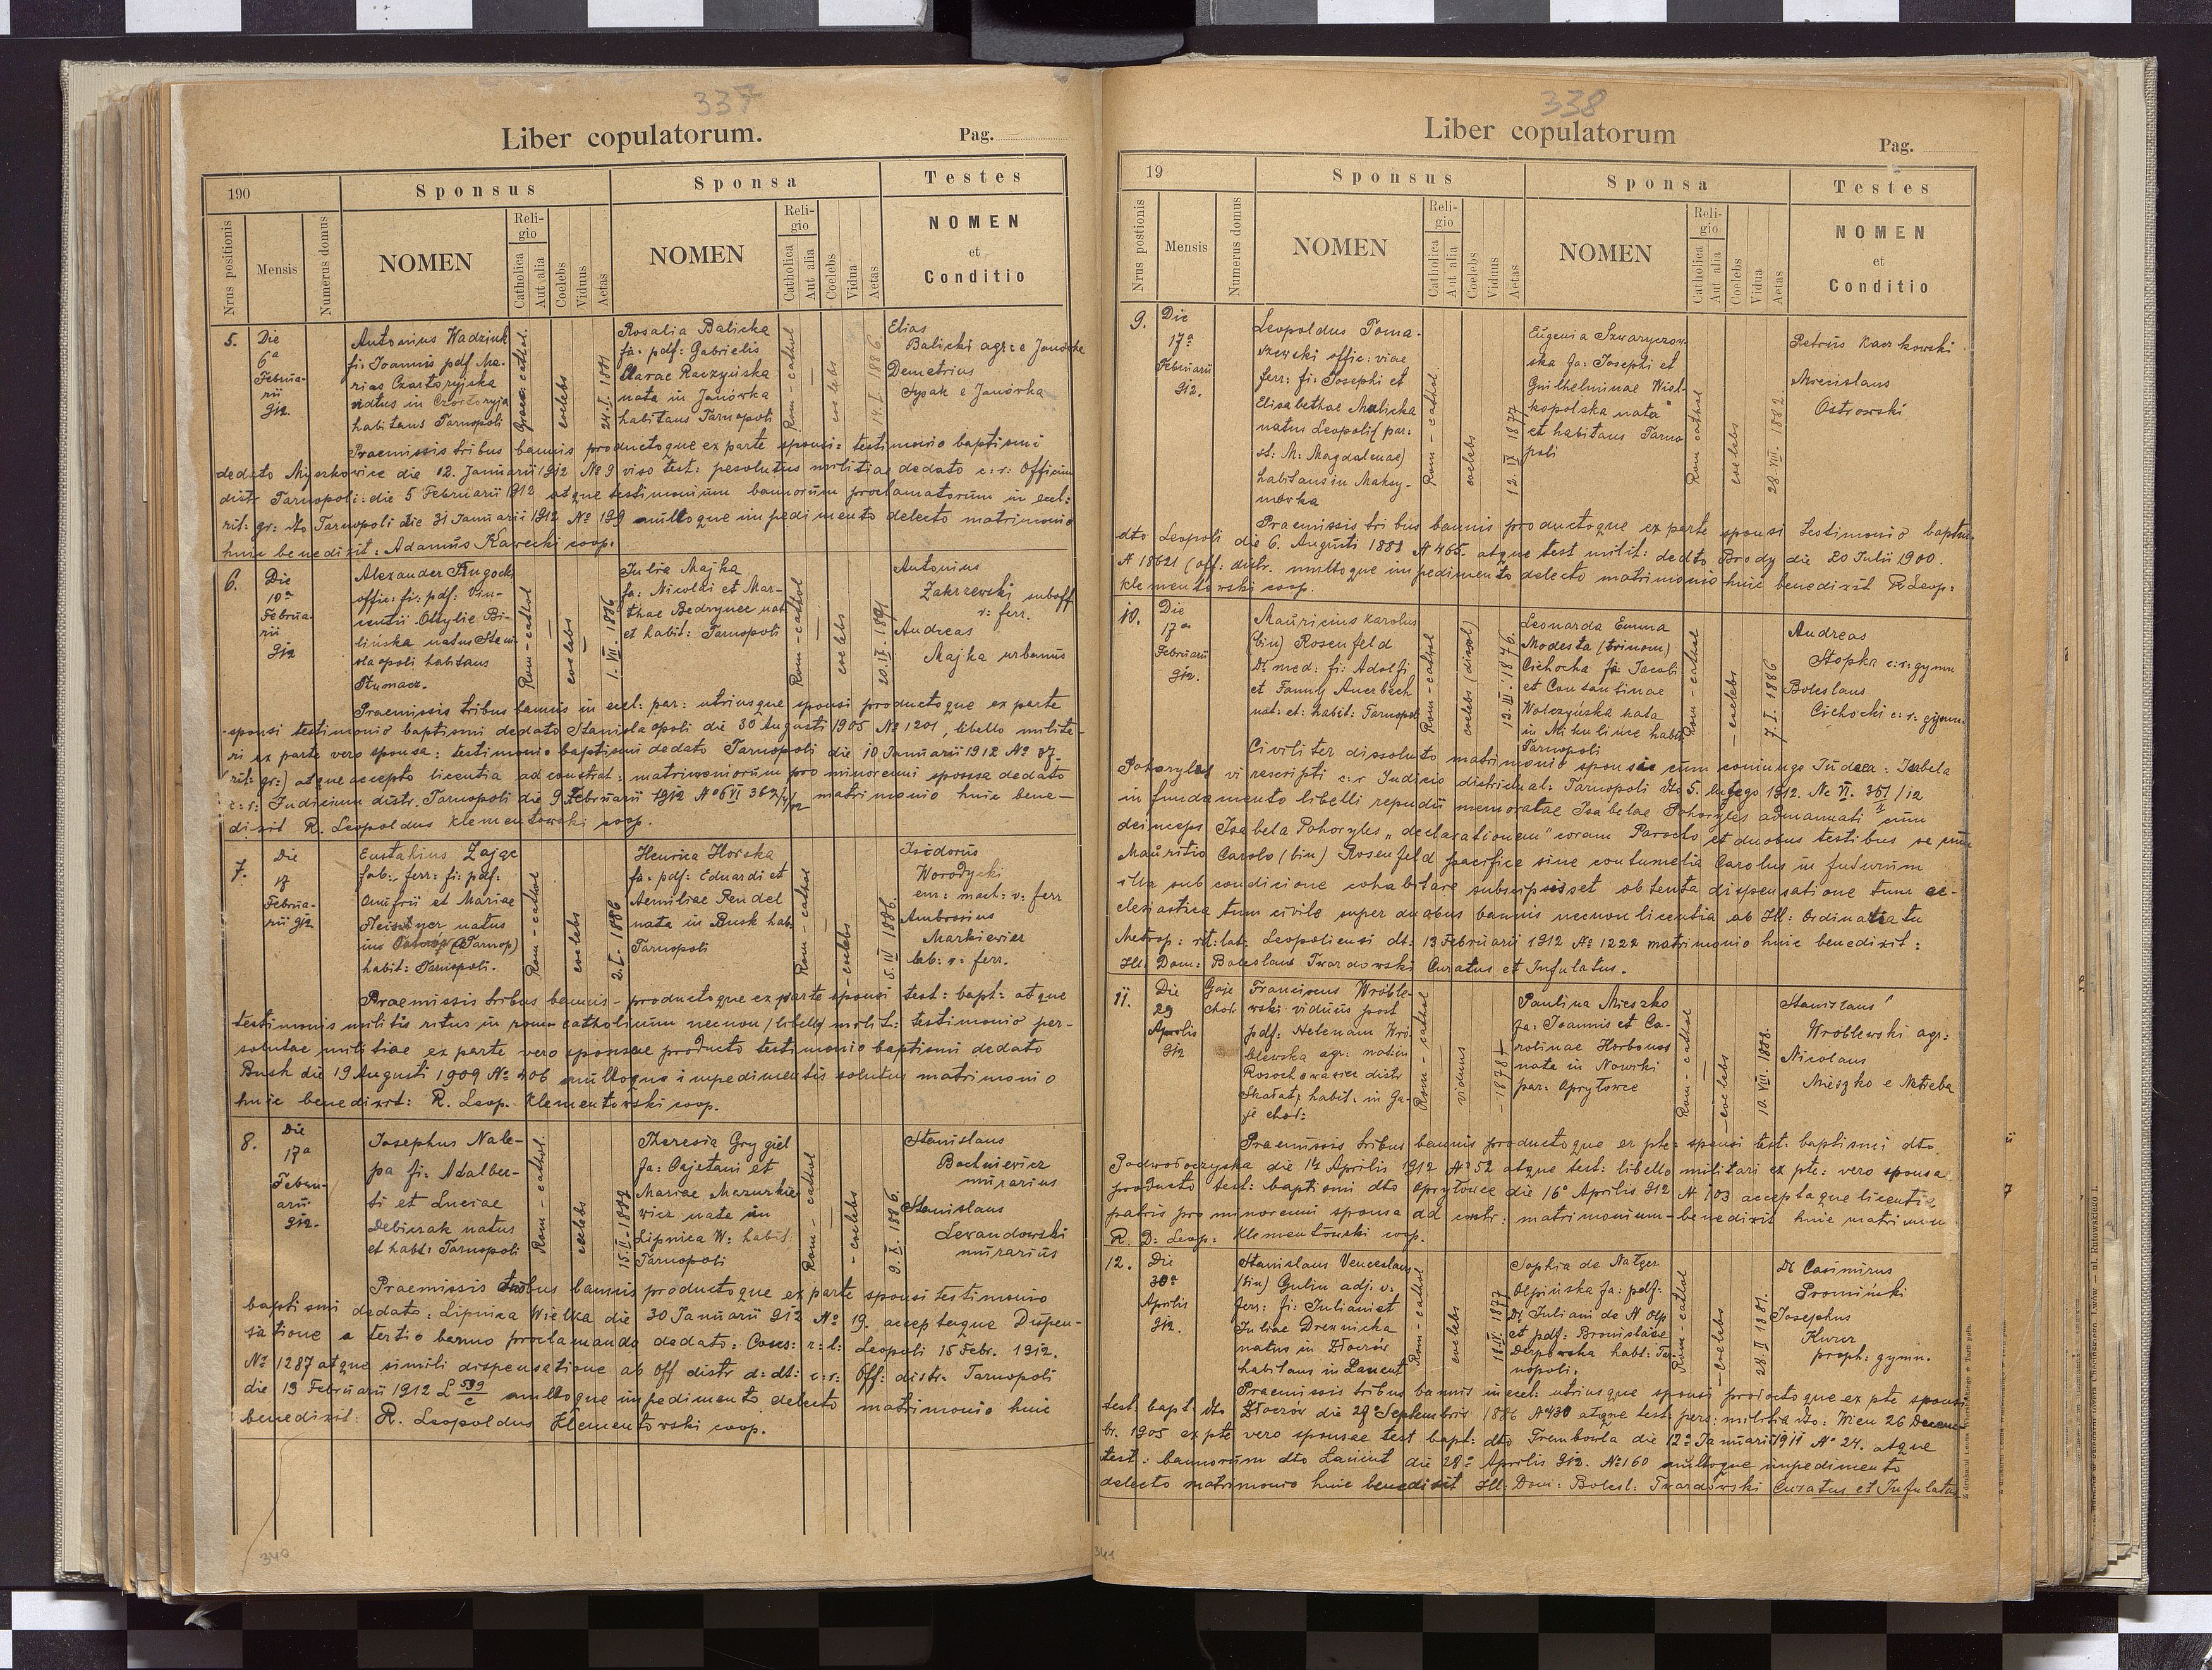 337
Liber copulatorum.
Pag.
190
Sponsus
Sponsa
Testes
Nrus positionis
Mensis
Numerus domus
NOMEN
Religio
Catholica
Aut alia
Coelebs
Viduus
Aetas
NOMEN
Religio
Catholica
Aut alia
Coelebs
Vidua
Aetas
NOMEN
et
Conditio
5.
Die
6a
Februarii
912
Antonius Wadziuk
fi: Joannis pdf Ma-
riae Czartoryjska
natus in Czartoryja
habitans Tarnopoli
Graec. cathol.
coelebs
24.I.1881
Rosalia Balicka
fa: pdf: Gabrielis
Clarae Raczyńska
nata in Janówka
habitans Tarnopoli
Rom-cathol
coelebs
14.I.1886.
Elias
Balicki agr: e Janówka
Demetrius
Sysak e Janówka
Praemissis tribus bannis productoque ex parte sponsi: testimonio baptismi
dedato Myszkowice die 12. Januarii 1912 No 9 viso test: pesolutus militiae dedato c:r: Officium
distr Tarnopoli: die 5 Februarii 1912 atque testimonium bannorum proclamatorum in eccl:
rit: gr: dto Tarnopoli die 31 Januarii 1912 No 199 nulloque impedimento delecto matrimonio
huic benedixit: Adamus Kawecki coop.
6.
Die
10a
Februarii
912
Alexander
offic: fi: pdf: Vin-
centii Ottylie Bi-
lińska natus Stani-
slaopoli habitans
Tłumacz.
Rom-cathol
coelebs
1.VII.1886
Julia Majka
fa: Nicolai et Mar-
thae Bedryniec nat
et habit: Tarnopoli
Rom-cathol
coelebs
20.IV.1891
Antonius
Zakrzewski suboff
v: ferr.
Andreas
Majka urbanus
Praemissis tribus bannis in eccl: par: utriusque sponsi productoque ex parte
sponsi testimonio baptismi dedato Stanislaopoli die 30 Augusti 1905 No 1201, libello milita-
ri ex parte vero sponsa: testimonio baptismi dedato Tarnopoli die 10 Januarii 1912 No 87.
rit: gr:) atque accepto licentia ad contrat: matrimoniorum pro minorenni sponsa dedato
c:r: Judicium distr. Tarnopoli die 9 Februarii 1912 matrimonio huic bene-
dixit R. Leopoldus Klementowski coop.
7.
Die
17
Februarii 912
Eustahius Zając
fab: ferr: fi: pdf:
Onufrii et Mariae
natus
(Tarnop)
habit: Tarnopoli.
Rom-cathol
coelebs
2.I.1886
Henrica Horska
fa: pdf: Eduardi et
Aemiliae Rendel
nata in Busk hab:
Tarnopoli
Rom-cathol
coelebs
5.IV 1886.
Isidorus
Worodycki
em: mach: v: ferr
Ambrosius
Markiewicz
lab: v: ferr.
Praemissis tribus bannis productoque ex parte sponsi test: bapt: atque
testimonis militis ritus in rom-catholicum necnon libello milit: testimonio per-
solutae militiae ex parte vero sponsae producto testimonio baptismi dedato
Busk die 19 Augusti 1909 No 406 nulloque impedimentis solutus matrimonio
huic benedixit: R. Leop. Klementowski coop.
8.
Die
17a
Februarii
912.
Josephus Nale-
pa fi: Adalber-
ti et Luciae
Debinzak natus
et habt: Tarnopoli
Rom-cathol.
coelebs
15.II-1882
Theresia Grygiel
fa: Cajetani et
Mariae Mazurkie-
wicz nata in
Lipnica W: habit:
Tarnopoli
Rom-cathol
coelebs
9.X.1886.
Stanislaus
Bachniewicz
murarius
Stanislaus
Lewandowski
murarius
Praemissis tribus bannis productoque ex parte sponsi testimonio
baptismi dedato: Lipnica Wielka die 30 Januarii 912 No 19. acceptaque Dispen-
satione a tertio banno proclamando dedato: Coues: r:l: Leopoli 15 Febr. 1912.
No 1287 atque simili dispensatione ab Off distr d: dt: c:r: Off: distr: Tarnopoli
die 13 Februarii 1912 L 599/c nulloque impedimento delecto matrimonio huic
benedixit: R. Leopoldus Klementowski coop.
340
338
Liber copulatorum
Pag.
19
Sponsus
Sponsa
Testes
Nrus positionis
Mensis
Numerus domus
NOMEN
Religio
Catholica
Aut alia
Coelebs
Viduus
Aetas
NOMEN
Religio
Catholica
Aut alia
Coelebs
Vidua
Aetas
NOMEN
et
Conditio
9.
Die
17a
Februarii
912.
Leopoldus Toma-
szewski offic: viae
ferr: fi: Josephi et
Elisabethae Malicka
natus Leopoli (par:
st: M: Magdalenae)
habitans in Maksy-
mówka
Rom-cathol.
coelebs
12.IX 1877
Eugenia Szwaryczow-
ska fa: Josephi et
Guilhelminae Wiel-
kopolska nata
et habitans Tarno
poli
Rom cathol
coelebs
28.VII.1882
Petrus Kaczkowski
Miecislaus
Ostrowski
Praemissis tribus bannis productoque ex parte sponsi testimonio baptis-
dto Leopoli die 6. Augusti 1888 No 465. atque test milit: dedto Brody die 20 Julii 1900.
No 18621 (off: distr. nulloque impedimento delecto matrimonio huic benedixit R Leop:
Klementowski coop.
10.
Die
17a
Februarii
912.
Mauricius Karolus
(bin) Rosenfeld
Dr med: fi: Adolfi
et Fanny Auerbach
nat: et: habit: Tarnopoli
Rom-cathol
coelebs (dissol)
12.III.1876.
Leonarda Emma
Modesta (trinom)
Cichocka fa: Jacobi
et Constantinae
Wolczyńska nata
in Mikulińce habit:
Tarnopoli
Rom-cathol
coelebs
7.I.1886
Andreas
Stopka c:r: gymn
Boleslaus
Cichocki c:r: gymn.
Civiliter dissoluto matrimonio sponsi cum coniuge Judaea: Isabela
Pohoryles vi rescripti c:r Judicio districtual: Tarnopoli dto 5. lutego 1912. Nc VI. 351/12
in fundamento libelli repudii memoratae Isabelae Pohoryles admannati cum
deinceps Isabela Pohoryles „declarationem" coram Parocho et duobus testibus se cum
Mauritio Carolo (bin) Rosenfeld pacifice sine contumelia Carolus in futurum
illa sub condicione cohabitare subscripsisset obtenta dispensatione tum ec-
clesiastica tum civile super duabus bannis necnon licentia ab Ill: Ordinariatu
Metrop: rit: lat: Leopoliensi dt: 13 Februarii 1912 No 1222 matrimonio huic benedixit:
Ill: Dom: Boleslaus Twardowski Curatus et Infulatus.
11.
Die
29
Aprilis
912
Gaje
chod:
Franciscus Wróble-
wski viduus post
pdf: Helenam Wró
blewska agr: nat: in
Rosochowaciec distr
Skałat; habit: in Ga-
je chod:
Rom-cathol
viduus
1878
Paulina Mieszko
fa: Joannis et Ca-
rolinae Horbouos
nata in Nowiki
par: Opryłowce
Rom-cathol
coelebs
10.VII.1888.
Stanislaus
Wróblewski agr:
Nicolaus
Mieszko e Netreba
Praemissis tribus bannis productoque ex pte: sponsi test: baptismi dto.
Podwołoczyska die 14 Aprilis 1912 No 52 atque test: libello militari ex pte: vero sponsa
producto test: baptismi dto Opryłowce die 16a Aprilis 912 No 103 acceptaque licentia
patris pro minorenni sponsa ad contr: matrimonium - benedixit huic matrimon
R. D: Leop: Klementowski coop.
12.
Die
30a
Aprilis
912.
Stanislaus Venceslaus
(bin) Gulin adj. v:
ferr: fi: Juliani et
Juliae Drexnicka
natus in Złoczów
habitans in Łancut
Rom-cathol
coelebs
18.IV.1877
Sophia de Natger
Olpińska fa: pdf:
Dr Juliani de
et pdf: Bronislawae
habt: Tar-
nopoli.
Rom-cathol
coelebs
28.II 1881.
Dr Casimirus
Promiński
Josephus
Kurer
proph: gymn.
Praemissis tribus bannis in eccl: utriusque sponsi productoque ex pte sponsi
test: bapt: dto Złoczów die 29 Septembris 1886 No 430 atque test: pers: militia dto: Wien 26 Decem-
br. 1905 ex pte vero sponsae test bapt: dto Trembowla die 12a Januarii 1911 No 24. atque
test: bannorum dto Łancut die 28a Aprilis 912. No 160 nulloque impedimento
delecto matrimonio huic benedixit Ill: Dom: Bolesl: Twardowski Curatus et Infulatus
341